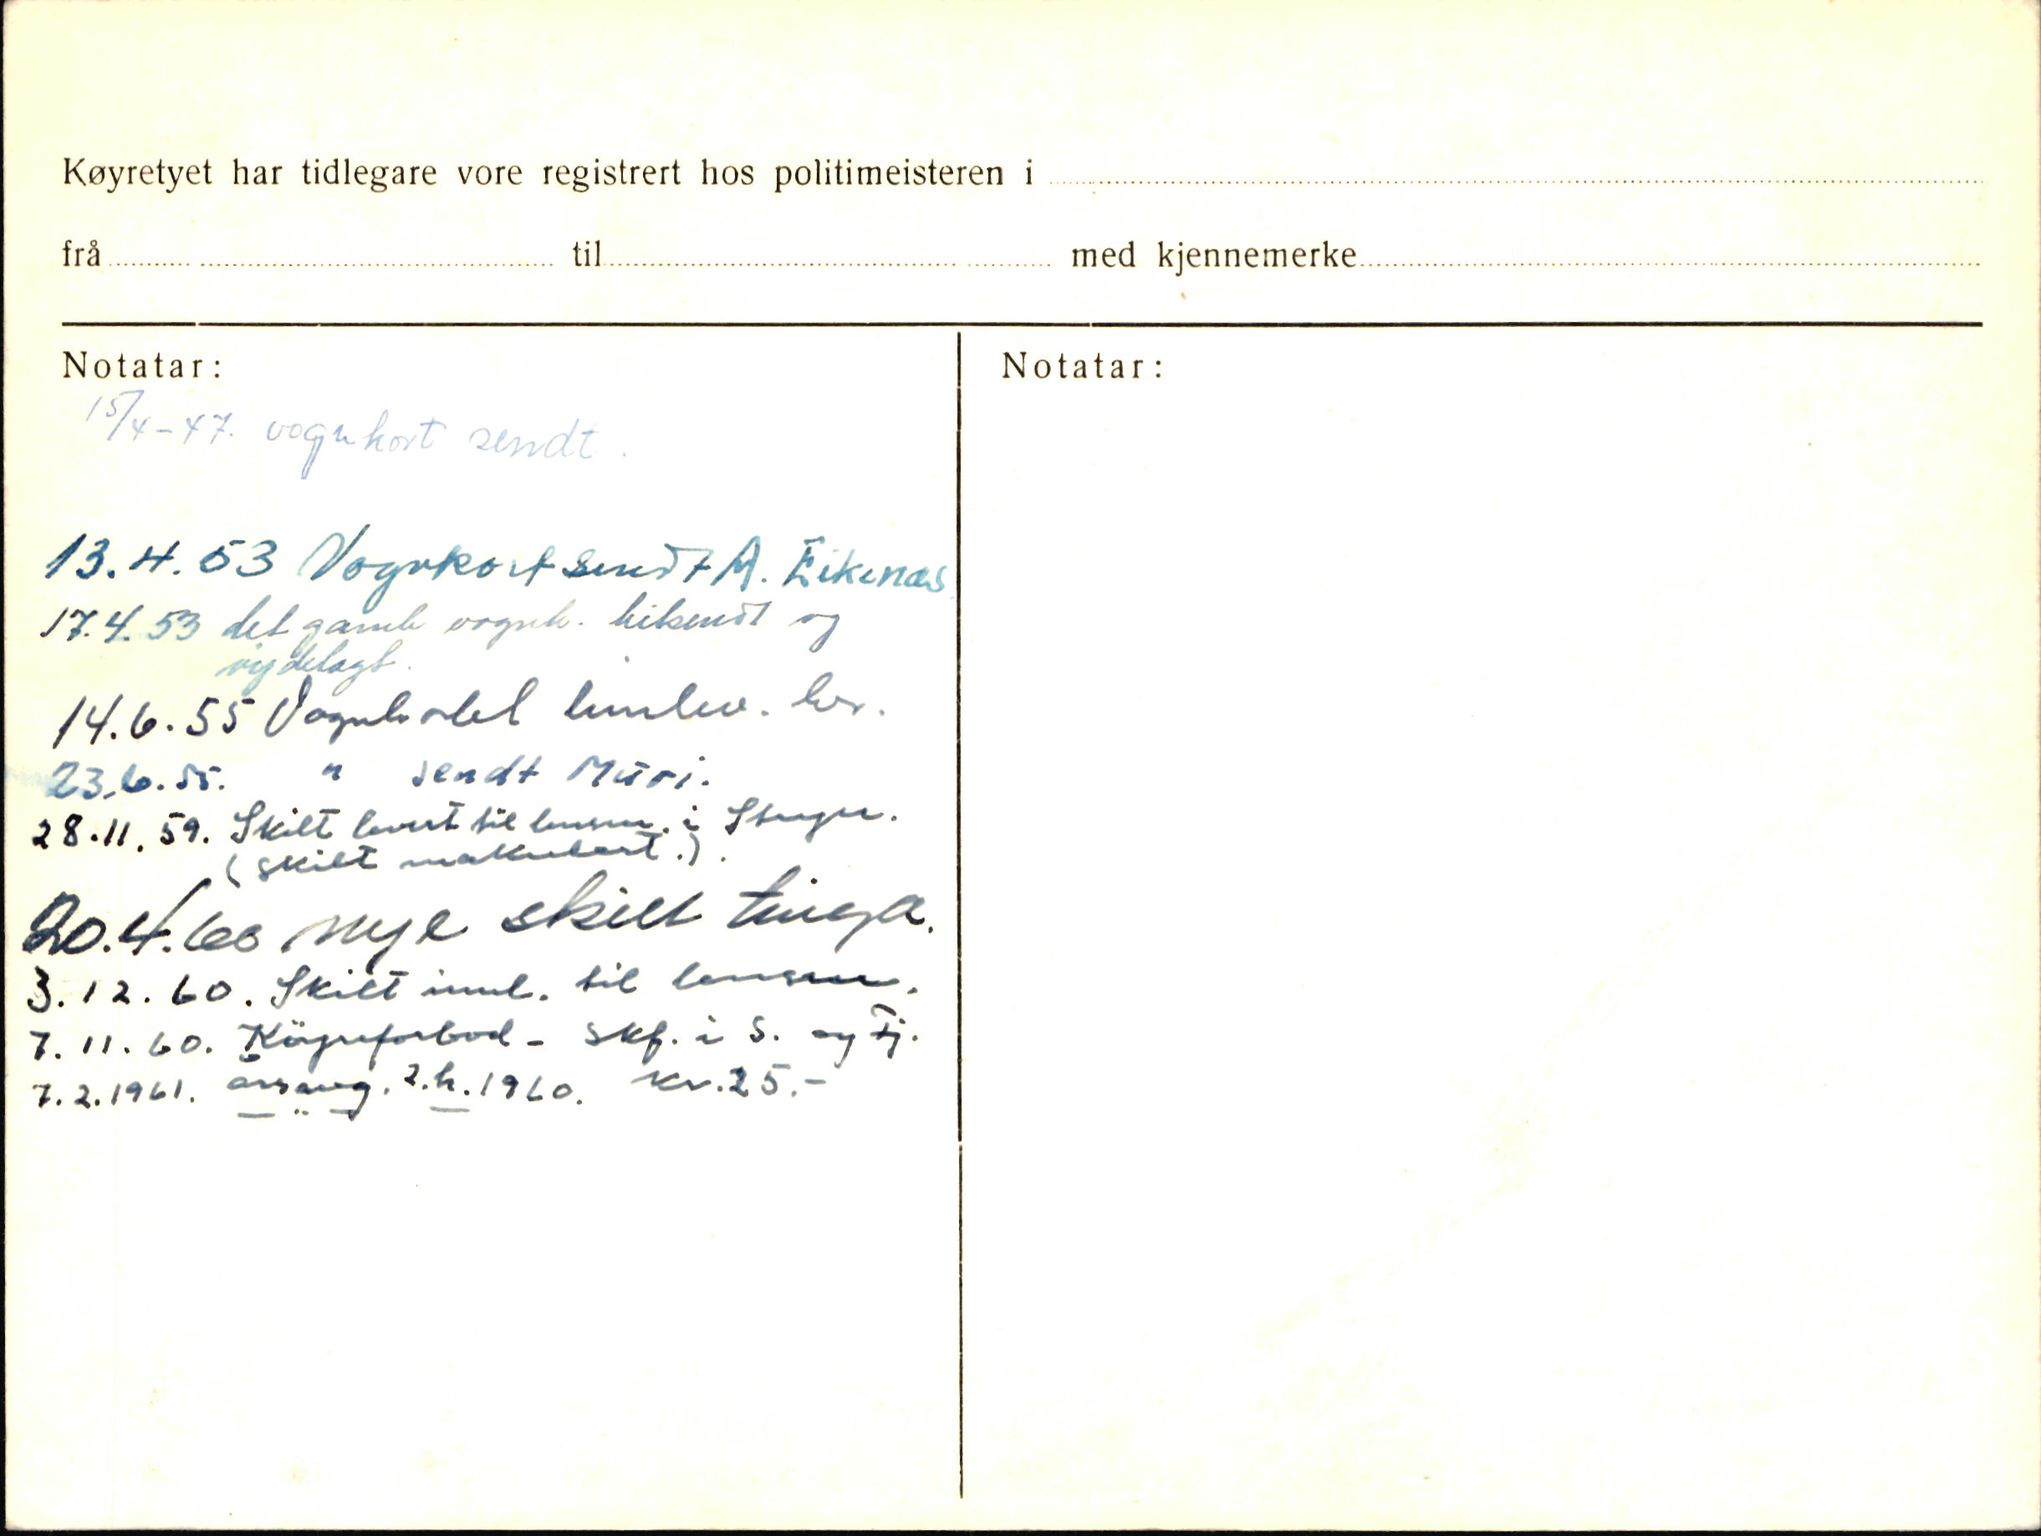 Køyretyet har tidlegare vore registrert hos politimeisteren i
frå til med kjennemerke
Notatar:
Notatar:
15/4-47. vognkort sendt.
13.4.53 Vognkort sendt A. Eikenæs
17.4.53 det gamle vognk. hitsendt og
øydelagt.
14.6.55 Vognkortet innlev. her.
23.6.55. " sendt Muri.
28.11.59. Skilt levert til lensm. i Stryn.
(skilt makulert.).
20.4.60 nye skilt tinga.
3.12.60. Skilt innl. til lensm.
7.11.60. Köyreforbod - skf. i S. og Fj.
7.2.1961. årsavg. 2.h. 1960. kr. 25.-